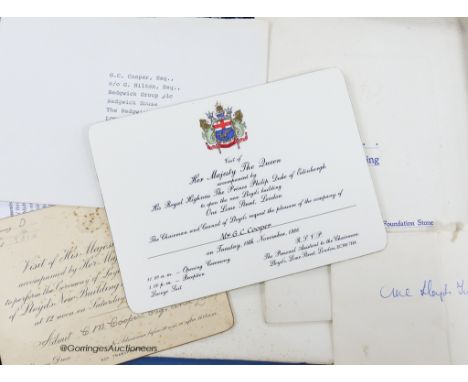 G.C. Cooper, Esq.,
c/o G. Hilton, Esq.
Sedgwick Group plc
Sedgwick House
The Sedgwick
Visit of
Her Majesty The Queen
accompanied by
His Royal Highness The Prince Philip, Duke of Edinburgh
to open the new Lloyd's building
One Lime Street, London
The Chairman and Council of Lloyd's request the pleasure of the company of
Mr G C Cooper
on Tuesday, 18th November, 1986
11.30 a.m. - Opening Ceremony
- Reception
Lounge Suit
R.S.V.P.
The Personal Assistant to the Chairman
Lloyd's, Lime Street, London EC3M 7HA
ing
Foundation Stone
Visit of His Majes
accompanied by Her Maj
to perform the Ceremony of
of Lloyd's New Building
at 12 noon on Saturday
Admit
Cooper
@GorringesAuctioneers